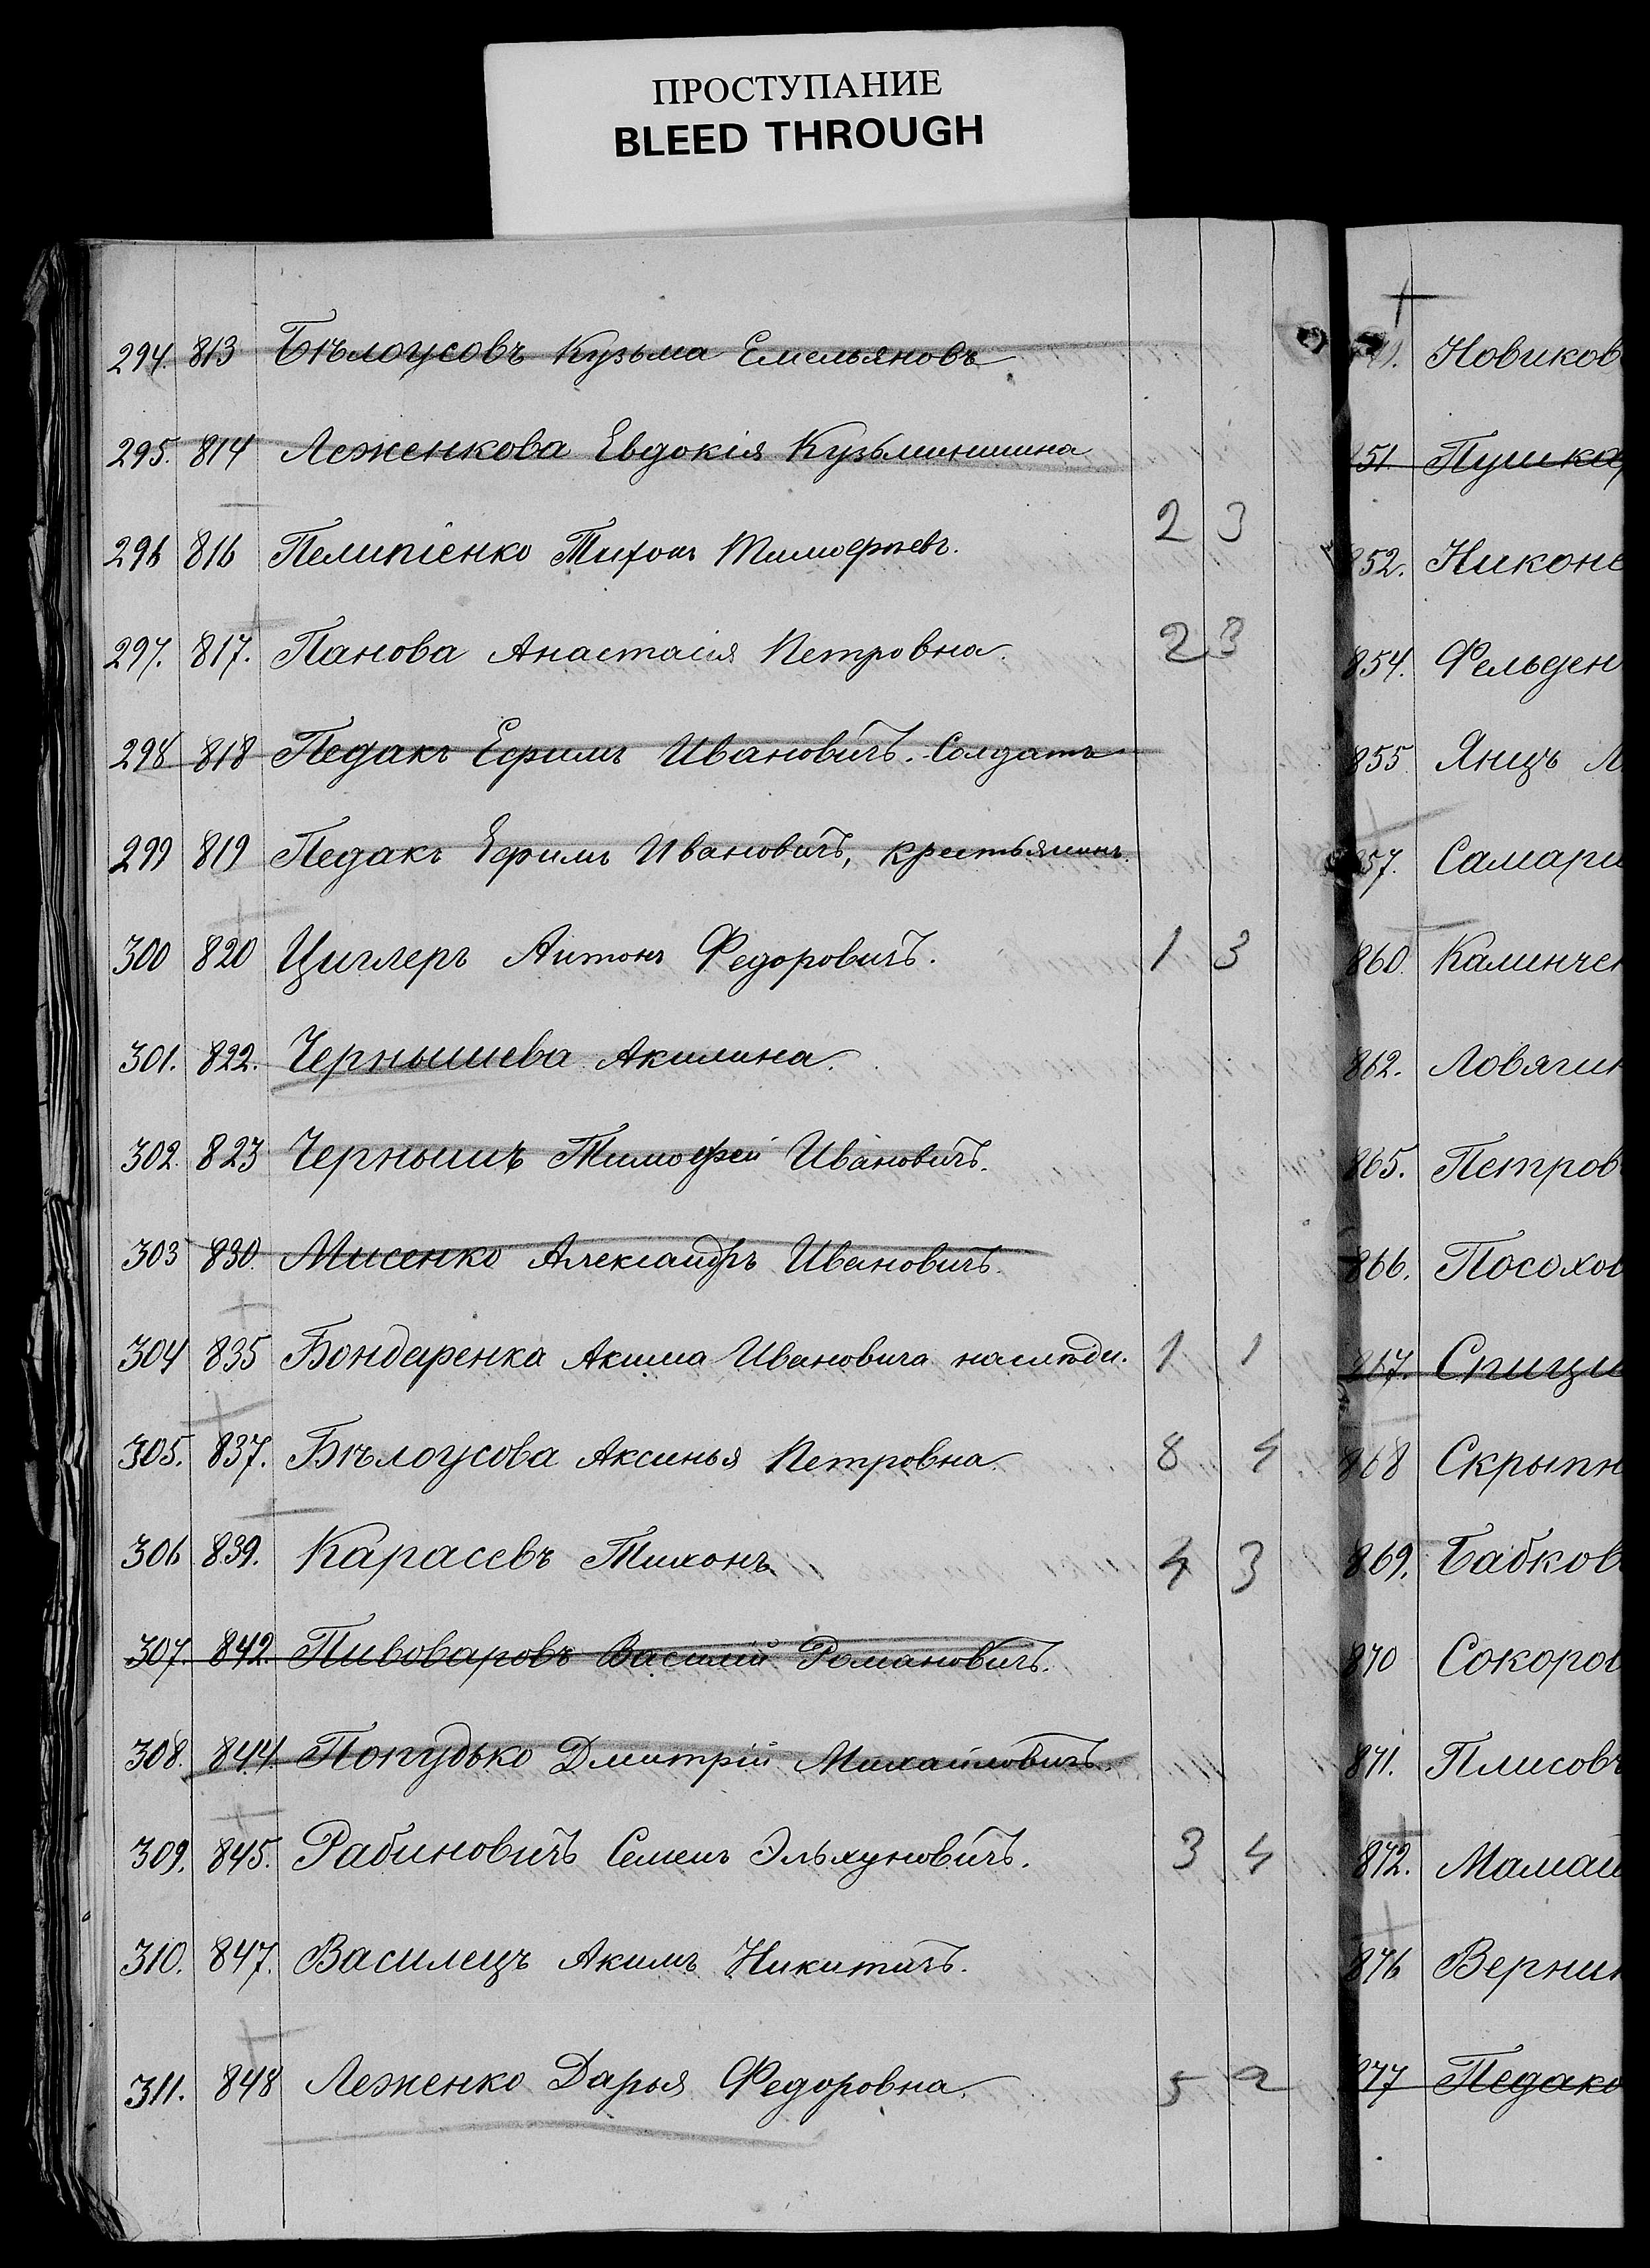 ПРОСТУПАНИЕ
BLEED THROUGH
294. 813 Бѣлоусовъ Кузьма Емельяновъ
295. 814 Леженкова Евдокія Кузьминишна
296 816 Пелипіенко Тихонъ Тимофѣевъ. 2 3
297. 817. Панова Анастасія Петровна. 2 3
298 818 Педакъ Ефимъ Ивановичъ. Солдатъ
299 819 Педакъ Ефимъ Ивановичъ, крестьянинъ.
300 820 Циглеръ Антонъ Федоровичъ. 1 3
301. 822. Чернышева Акилина.
302. 823 Чернышъ Тимофей Ивановичъ.
303 830. Мисенко Александръ Ивановичъ.
304 835 Бондаренка Акима Ивановича наслѣди. 1 1
305. 837. Бѣлоусова Аксинья Петровна. 8 4
306 839. Карасевъ Тихонъ. 4 3
307. 842. Пивоваровъ Василій Романовичъ.
308. 844. Попудько Дмитрій Михайловичъ.
309. 845. Рабиновичъ Семенъ Эльхуновичъ. 3 4
310. 847. Василецъ Акимъ Никитичъ.
311. 848 Леженко Дарья Федоровна. 5 2
Новиков
851. Пушка
852. Никоне
854. Фельден
855 Янцъ
857. Самари
860. Калинчен
862. Ловягин
865. Петров
866. Посохов
867. Спици
868 Скрыпн
869. Бабков
870 Сокоров
871. Плисовъ
872. Мамай
876 Верни
877 Педако